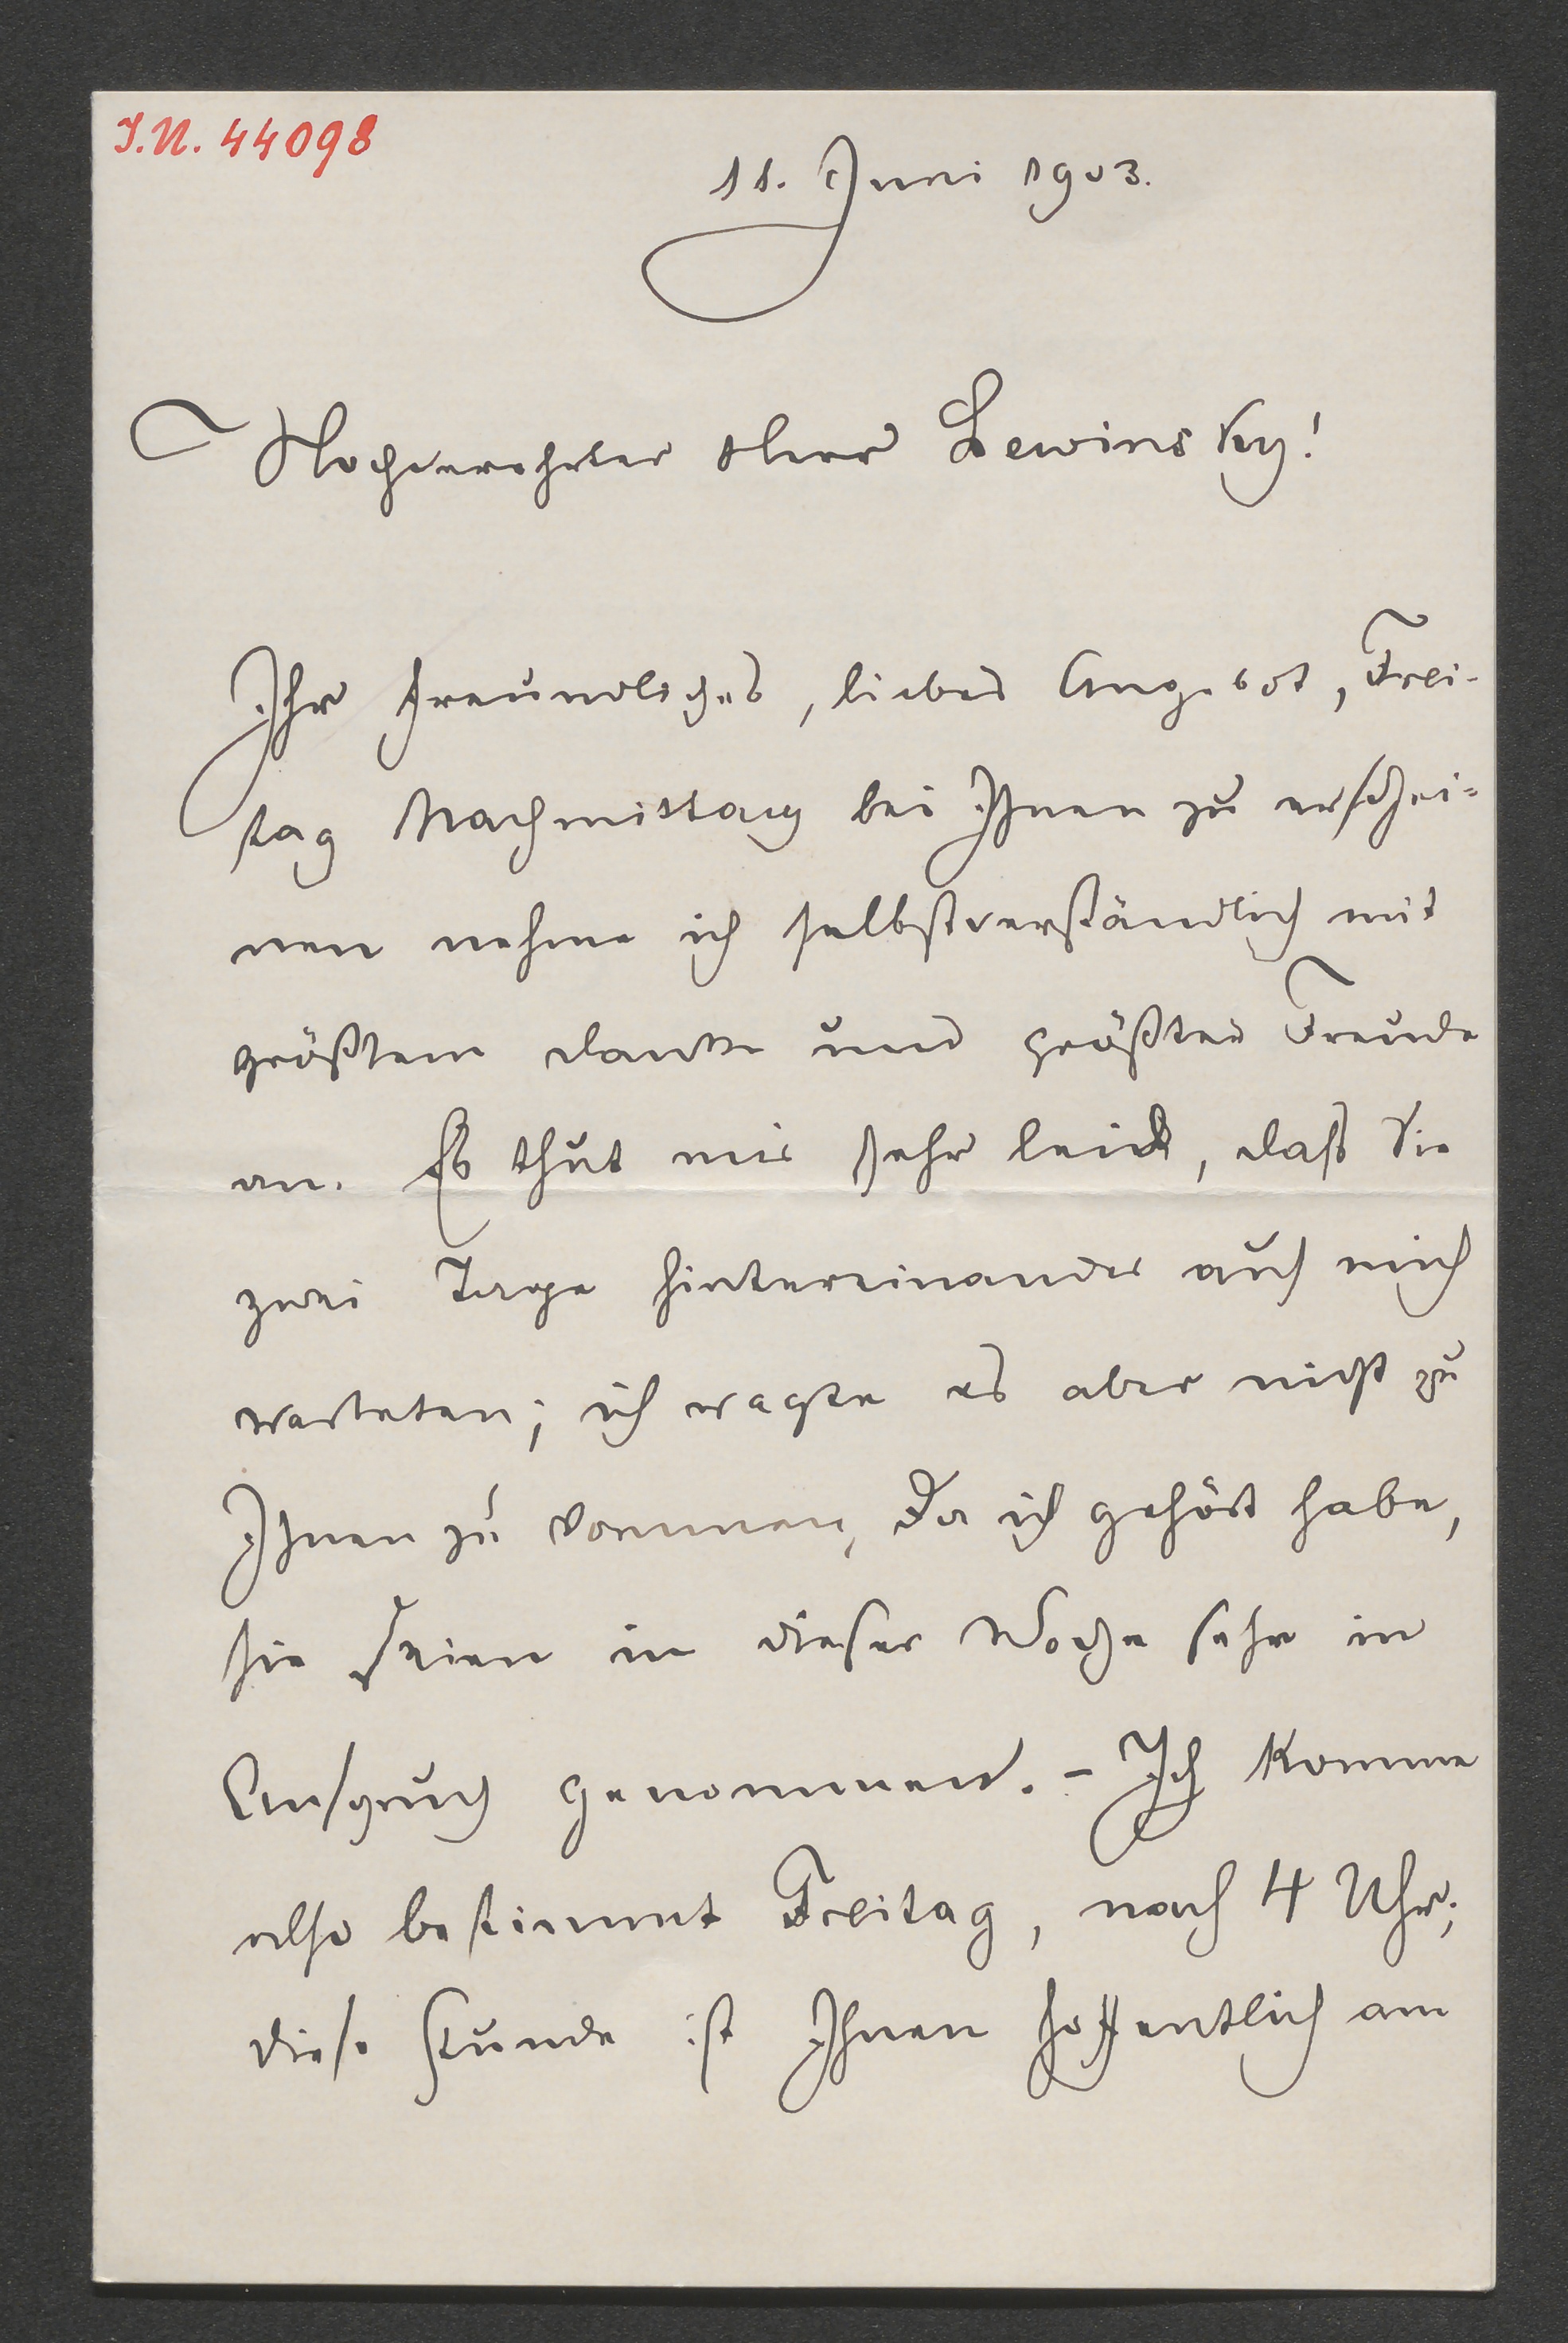 I.N. 44098
11. Juni 1903.
Hochverehrter Herr Lewinsky!
Ihr freundliches, liebes Angebot, Frei-
tag Nachmittag bei Ihnen zu erschei-
nen nehme ich selbstverständlich mit
größtem Danke und größter Freude
an. Es thut mir sehr leid, daß Sie
zwei Tage hintereinander auf mich
warteten; ich wagte es aber nicht zu
Ihnen zu kommen, da ich gehört habe,
Sie seien in dieser Woche sehr in
Anspruch genommen. – Ich komme
also bestimmt Freitag, nach 4 Uhr;
diese Stunde ist Ihnen hoffentlich am